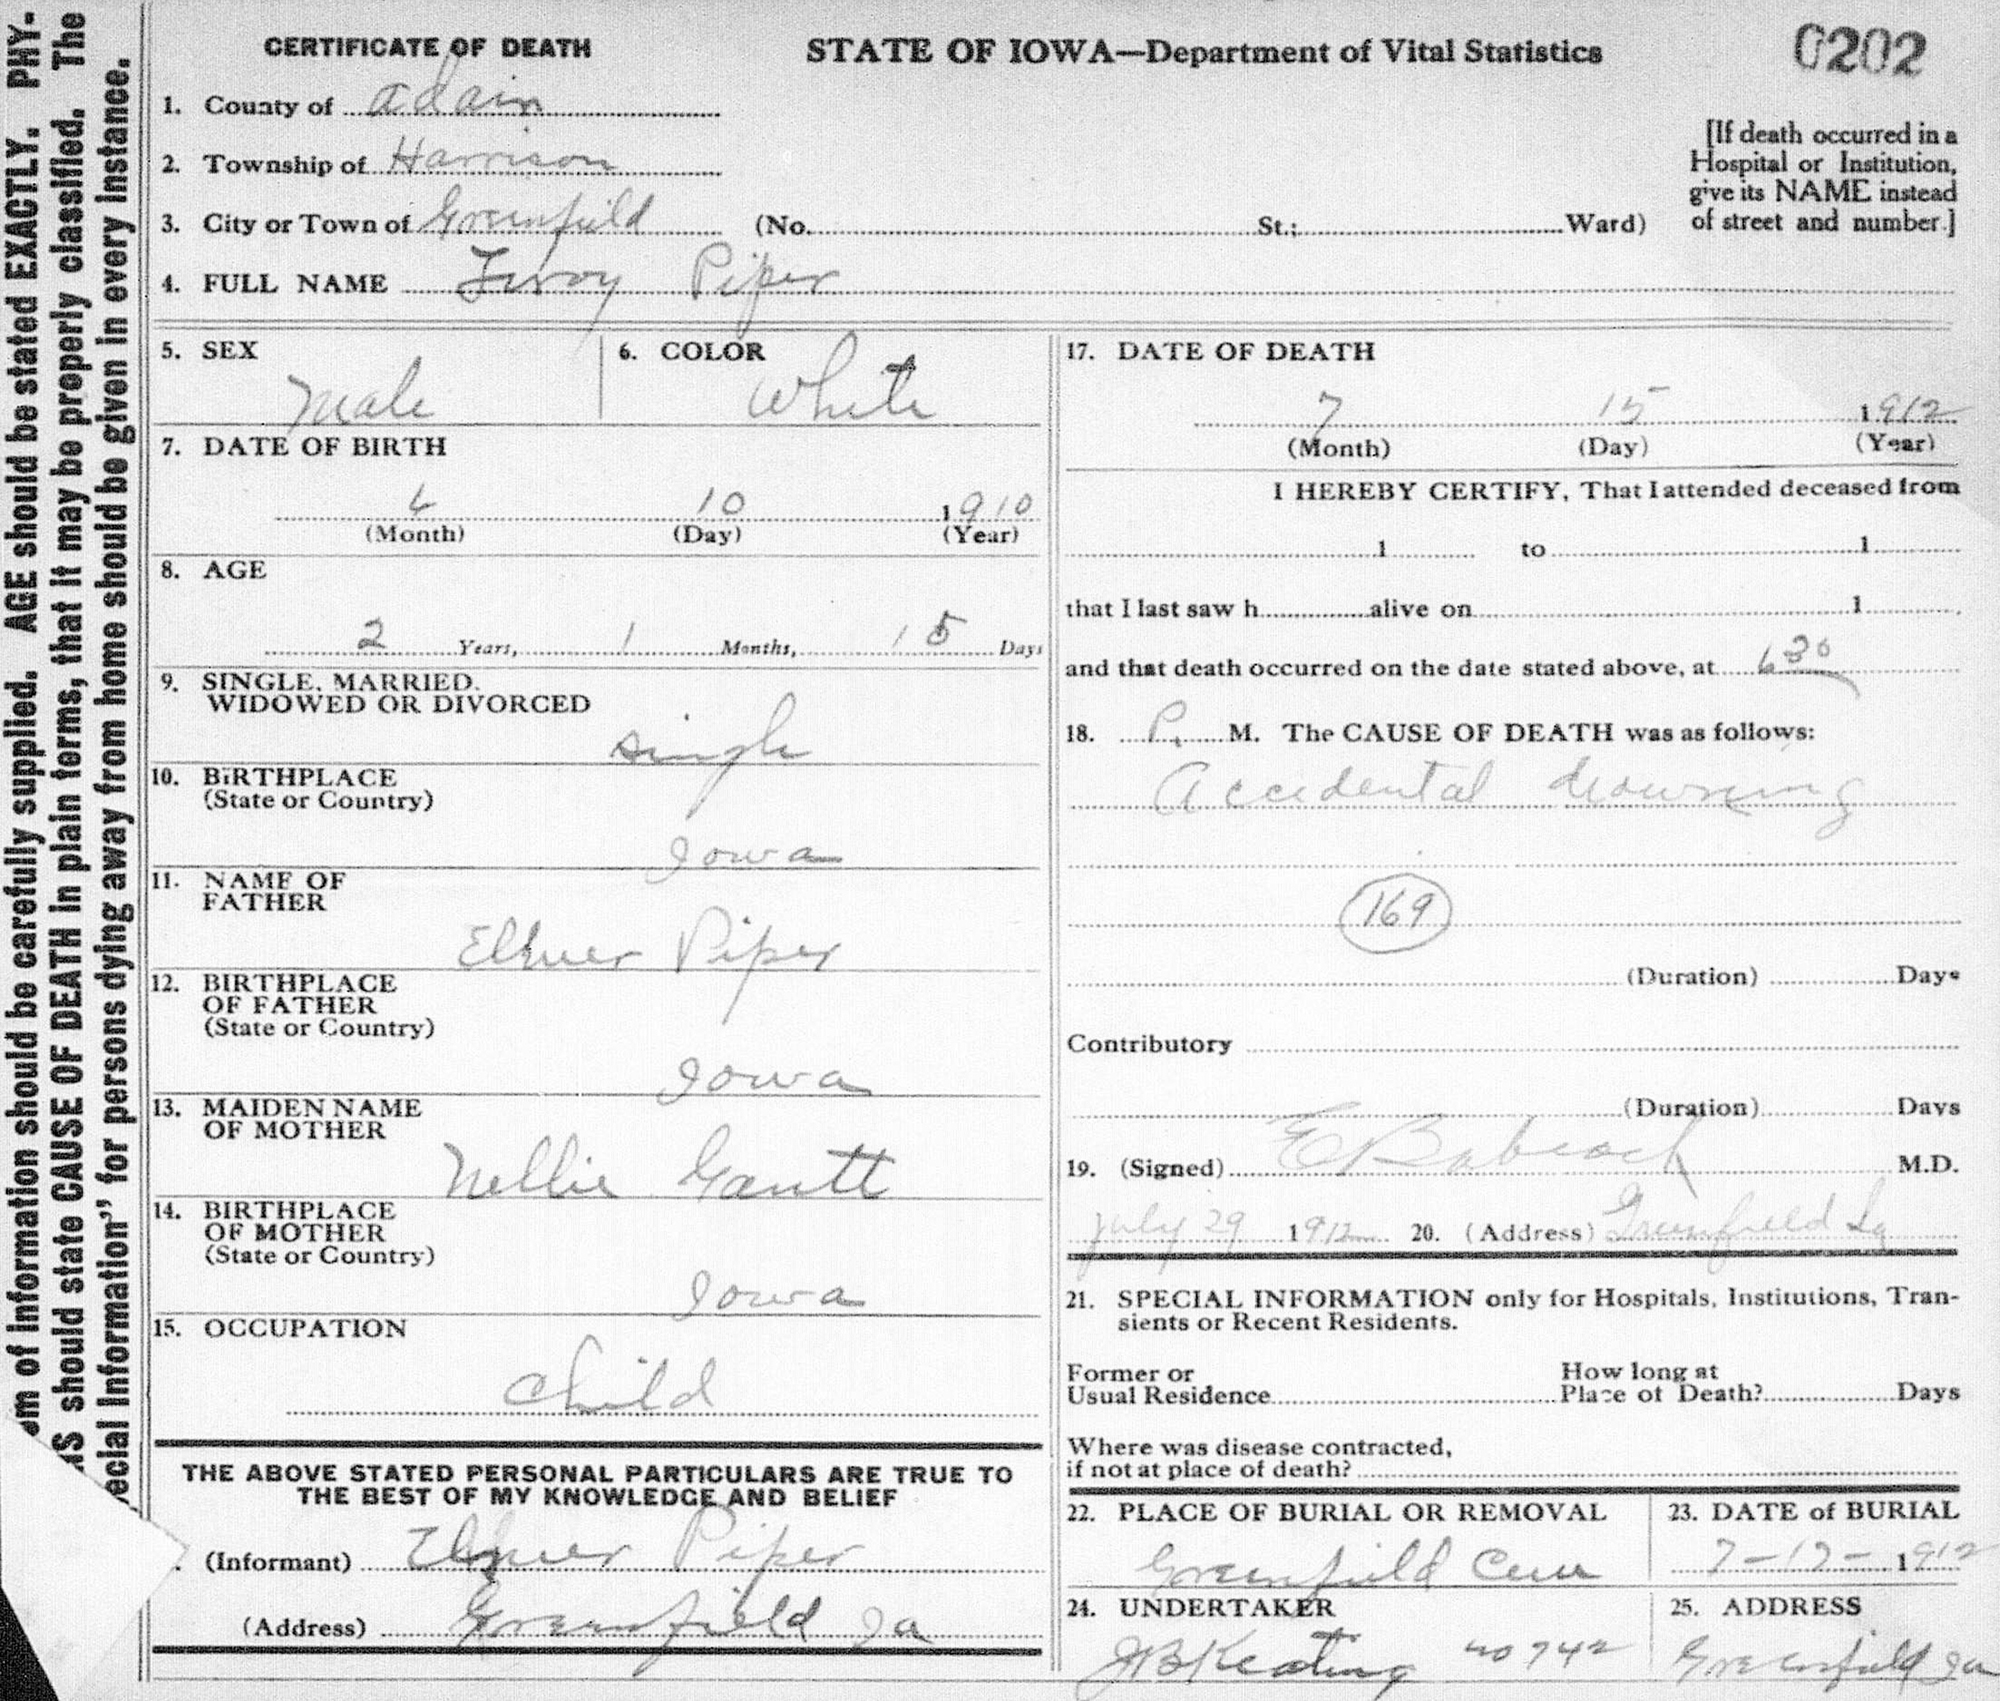 CERTIFICATE OF DEATH
STATE OF IOWA—Department of Vital Statistics
0202
1. County of Adair
2. Township of Harrison
3. City or Town of Greenfield (No. St.; Ward)
[If death occurred in a
Hospital or Institution,
give its NAME instead
of street and number.]
4. FULL NAME Piper
5. SEX
Male
6. COLOR
White
7. DATE OF BIRTH
10 1910
(Month) (Day) (Year)
8. AGE
2 Years, 1 Months, 15 Days
9. SINGLE, MARRIED,
WIDOWED OR DIVORCED
single
10. BIRTHPLACE
(State or Country)
Iowa
11. NAME OF
FATHER
Elmer Piper
12. BIRTHPLACE
OF FATHER
(State or Country)
Iowa
13. MAIDEN NAME
OF MOTHER
Nellie Gantt
14. BIRTHPLACE
OF MOTHER
(State or Country)
Iowa
15. OCCUPATION
Child
THE ABOVE STATED PERSONAL PARTICULARS ARE TRUE TO
THE BEST OF MY KNOWLEDGE AND BELIEF
(Informant) Elmer Piper
(Address) Greenfield Ia
17. DATE OF DEATH
7 15 1912
(Month) (Day) (Year)
I HEREBY CERTIFY, That I attended deceased from
1 to 1
that I last saw h alive on 1
and that death occurred on the date stated above, at 630
18. P. M. The CAUSE OF DEATH was as follows:
Accidental drowning
169
(Duration) Days
Contributory
(Duration) Days
19. (Signed) E Babcock M.D.
July 29 1912 20. (Address) Greenfield Ia
21. SPECIAL INFORMATION only for Hospitals, Institutions, Tran-
sients or Recent Residents.
Former or
Usual Residence
How long at
Place of Death? Days
Where was disease contracted,
if not at place of death?
22. PLACE OF BURIAL OR REMOVAL
Greenfield Cem
23. DATE of BURIAL
7-17-1912
24. UNDERTAKER
JB Keating no 742
25. ADDRESS
Greenfield Ia
em of information should be carefully supplied. AGE should be stated EXACTLY. PHY-
NS should state CAUSE OF DEATH in plain terms, that it may be properly classified. The
ecial Information" for persons dying away from home should be given in every instance.